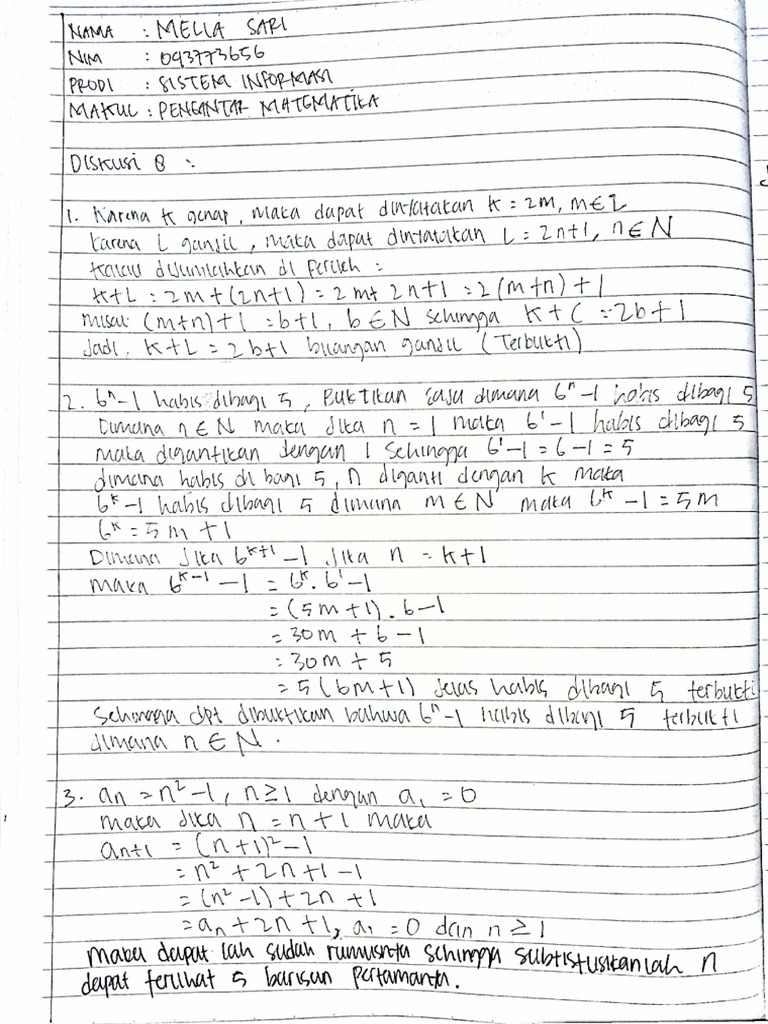 NAMA : MELIA SARI
NIM : 043773656
PRODI : SISTEM INFORMASI
MAKUL : PENGANTAR MATEMATIKA
DISKUSI 8 :
1. Karena K genap, maka dapat dinyatakan K = 2m, m ∈ Z
Karena L ganjil, maka dapat dinyatakan L = 2n+1, n ∈ N
Kalau dijumlahkan di peroleh :
K+L = 2m + (2n+1) = 2m + 2n+1 = 2(m+n) + 1
misal (m+n)+1 = b+1, b ∈ N sehingga K + L = 2b+1
Jadi, K+L = 2b+1 bilangan ganjil (Terbukti)
2. 6ⁿ-1 habis dibagi 5, Buktikan saja dimana 6ⁿ-1 habis dibagi 5
Dimana n ∈ N maka Jika n = 1 maka 6¹-1 habis dibagi 5
maka digantikan dengan 1 sehingga 6¹-1 = 6-1 = 5
dimana habis di bagi 5, n diganti dengan k maka
6ᵏ-1 habis dibagi 5 dimana m ∈ N maka 6ᵏ -1 = 5m
6ᵏ = 5m +1
Dimana Jika 6ᵏ⁺¹ -1 Jika n = k+1
maka 6ᵏ⁻¹ -1 = 6ᵏ. 6¹-1
= (5m+1). 6-1
= 30m + 6 -1
= 30m + 5
= 5(6m+1) Jelas habis dibagi 5 terbukti
Sehingga dpt dibuktikan bahwa 6ⁿ-1 habis dibagi 5 terbukti
dimana n ∈ N.
3. an = n²-1, n≥1 dengan a₁ = 0
maka Jika n = n+1 maka
an+1 = (n+1)²-1
= n² + 2n+1 -1
= (n² -1) + 2n +1
= an + 2n +1, a₁ = 0 dan n ≥ 1
maka dapat lah sudah rumusnya sehingga subtistusikanlah n
dapat terlihat 5 barisan pertamanya.